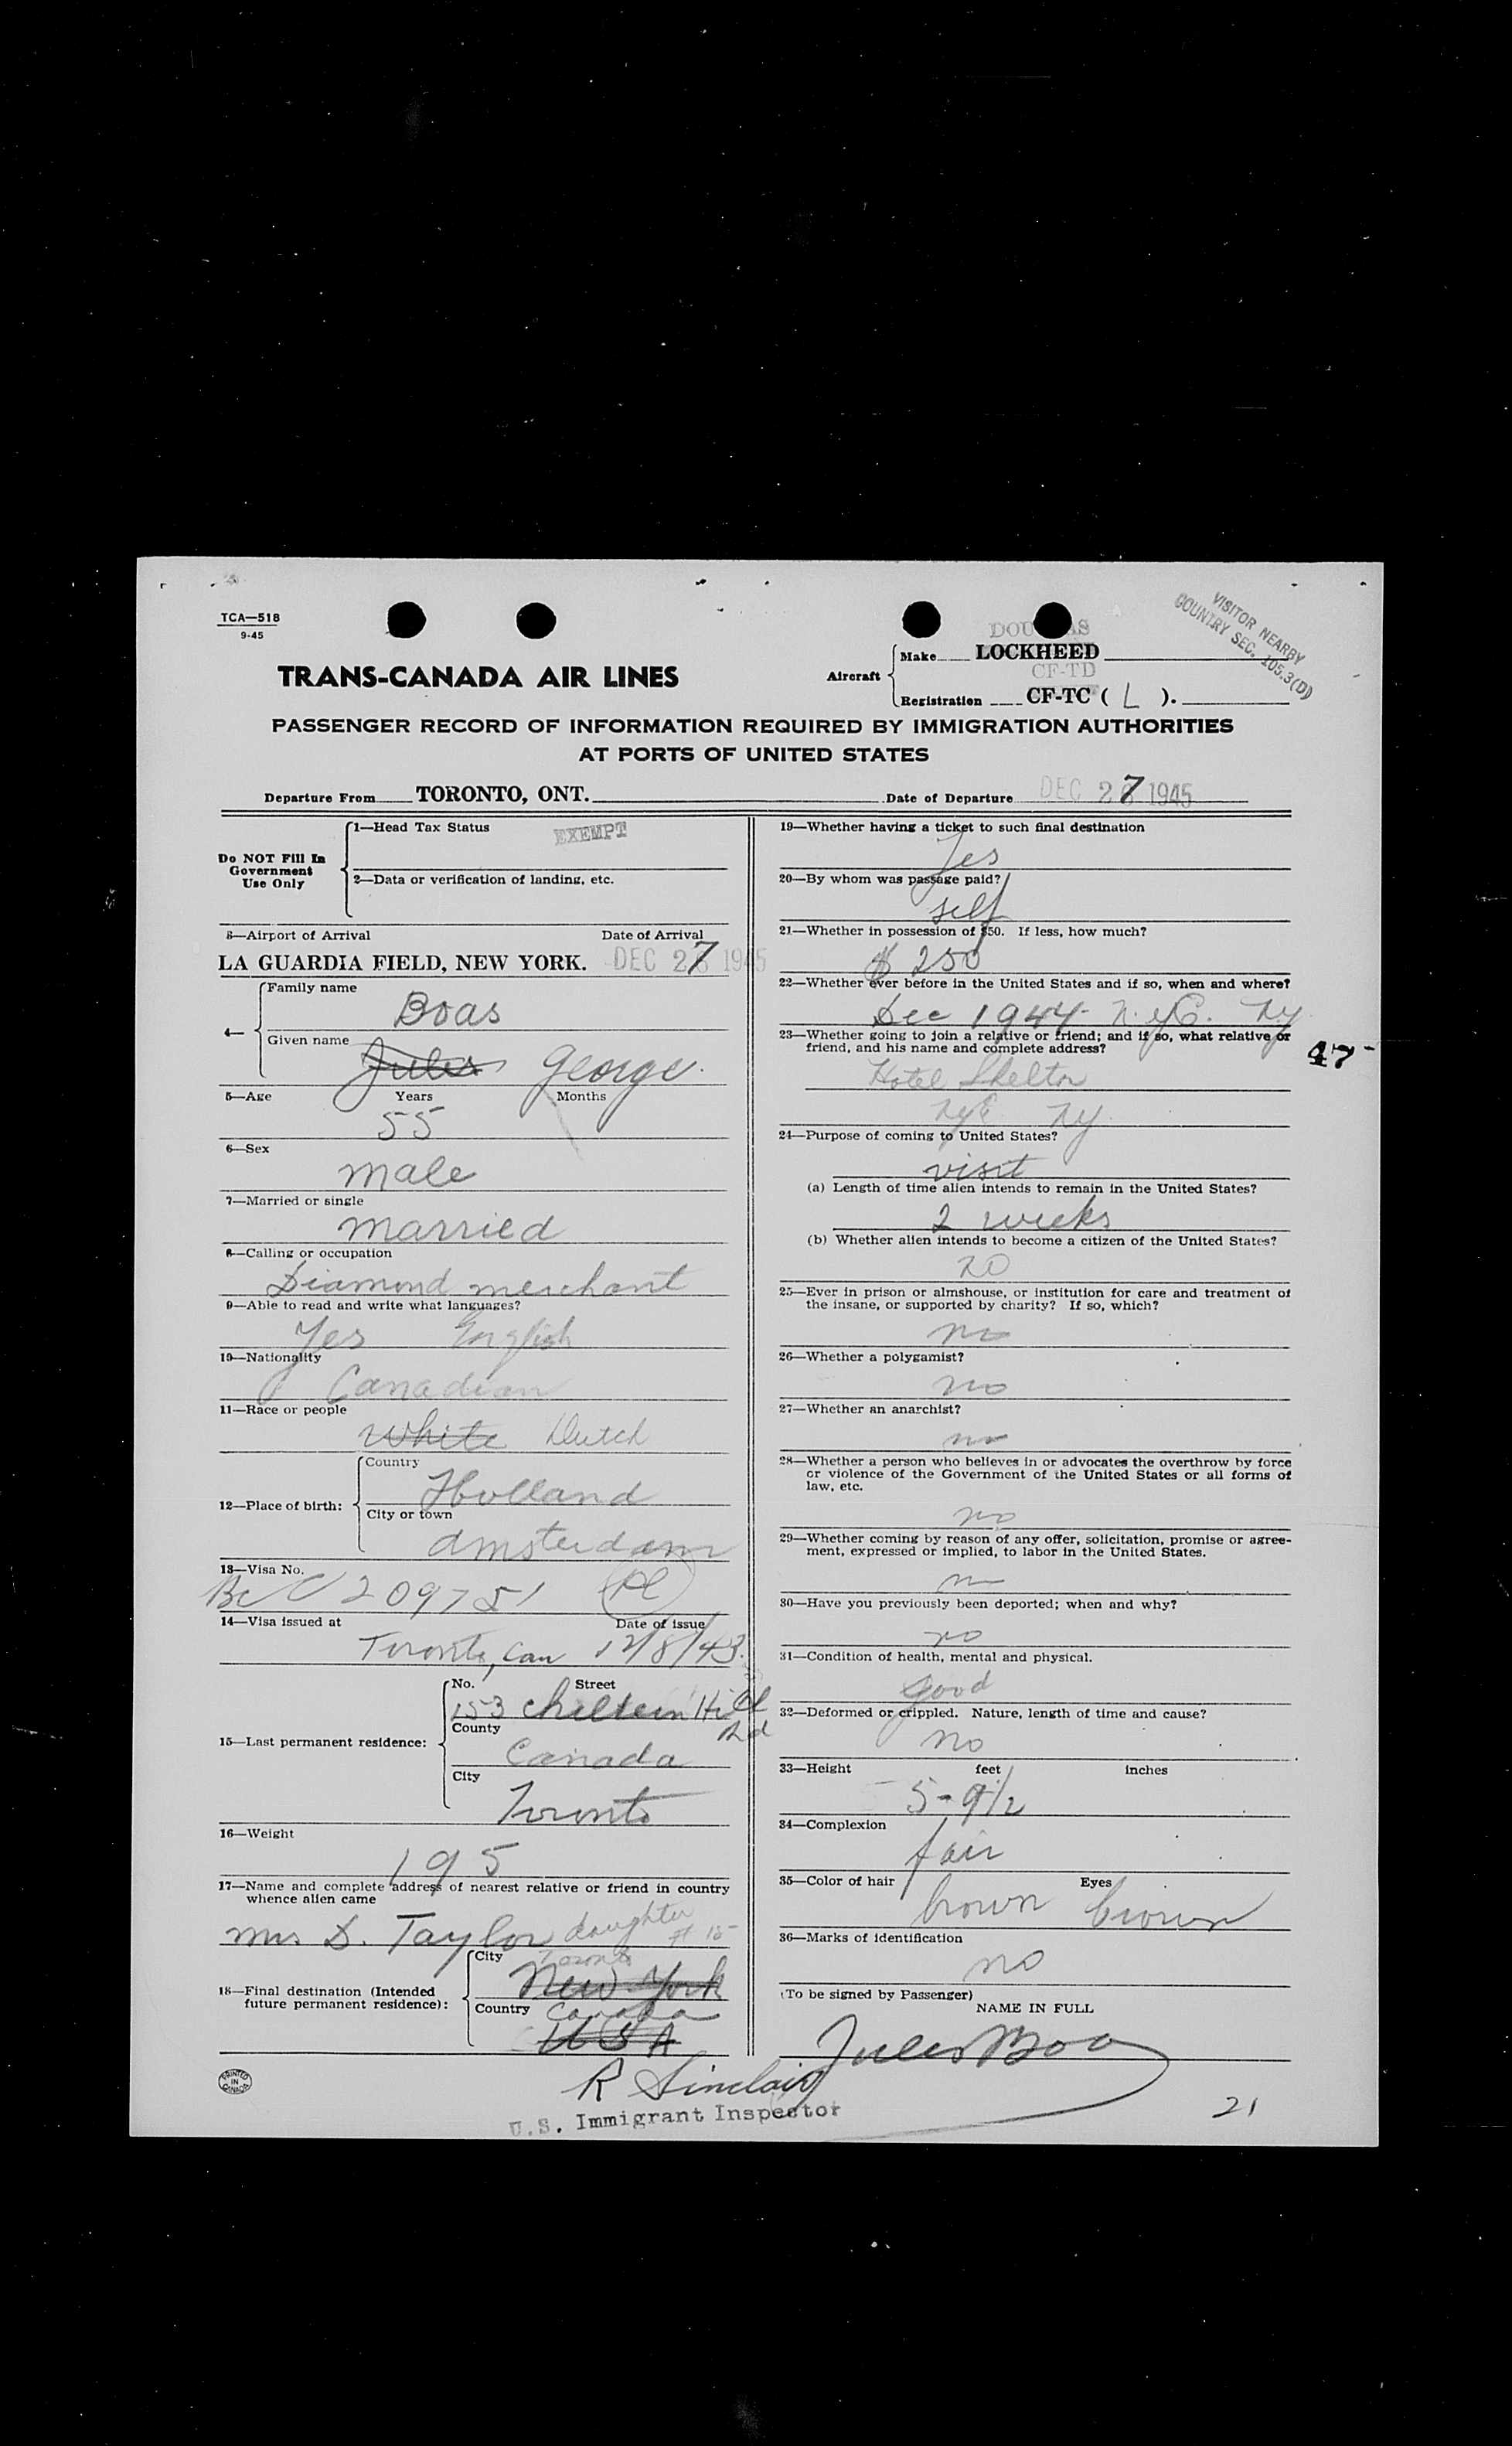 TCA—518
9-45
VISITOR NEARBY
COUNTRY SEC. 105.3(D)
DOUGLAS
Aircraft
Make LOCKHEED
CF-TD
Registration CF-TC ( L ).
TRANS-CANADA AIR LINES
PASSENGER RECORD OF INFORMATION REQUIRED BY IMMIGRATION AUTHORITIES
AT PORTS OF UNITED STATES
Departure From TORONTO, ONT. Date of Departure DEC 27 1945
Do NOT Fill In
Government
Use Only
1—Head Tax Status EXEMPT
2—Data or verification of landing, etc.
3—Airport of Arrival Date of Arrival
LA GUARDIA FIELD, NEW YORK. DEC 27 1945
4—
Family name
Boas
Given name
Jules George.
5—Age Years Months
55
6—Sex
male
7—Married or single
married
8—Calling or occupation
Diamond merchant
9—Able to read and write what languages?
Yes English
10—Nationality
Canadian
11—Race or people
White Dutch
12—Place of birth:
Country
Holland
City or town
Amsterdam
13—Visa No.
BCC 209751
14—Visa issued at Date of issue
Toronto, Can 12/8/43.
15—Last permanent residence:
No. Street
153 Chiltern Hill
Rd
County
Canada
City
Toronto
16—Weight
195
17—Name and complete address of nearest relative or friend in country
whence alien came
Mrs D. Taylor daughter
# 15
18—Final destination (Intended
future permanent residence):
City Toronto
New York
Country Canada
USA
PRINTED
IN
CANADA
R Sinclair
U.S. Immigrant Inspector
19—Whether having a ticket to such final destination
Yes
20—By whom was passage paid?
self
21—Whether in possession of $50. If less, how much?
$ 250
22—Whether ever before in the United States and if so, when and where?
Dec 1944 N.Y.C. NY
23—Whether going to join a relative or friend; and if so, what relative or
friend, and his name and complete address?
47
Hotel Shelton
NYC NY
24—Purpose of coming to United States?
visit
(a) Length of time alien intends to remain in the United States?
2 weeks
(b) Whether alien intends to become a citizen of the United States?
no
25—Ever in prison or almshouse, or institution for care and treatment of
the insane, or supported by charity? If so, which?
no
26—Whether a polygamist?
no
27—Whether an anarchist?
no
28—Whether a person who believes in or advocates the overthrow by force
or violence of the Government of the United States or all forms of
law, etc.
no
29—Whether coming by reason of any offer, solicitation, promise or agree-
ment, expressed or implied, to labor in the United States.
no
30—Have you previously been deported; when and why?
no
31—Condition of health, mental and physical.
Good
32—Deformed or crippled. Nature, length of time and cause?
no
33—Height feet inches
5-9 1/2
34—Complexion
fair
35—Color of hair Eyes
brown brown
36—Marks of identification
no
(To be signed by Passenger)
NAME IN FULL
Jules Boas
21